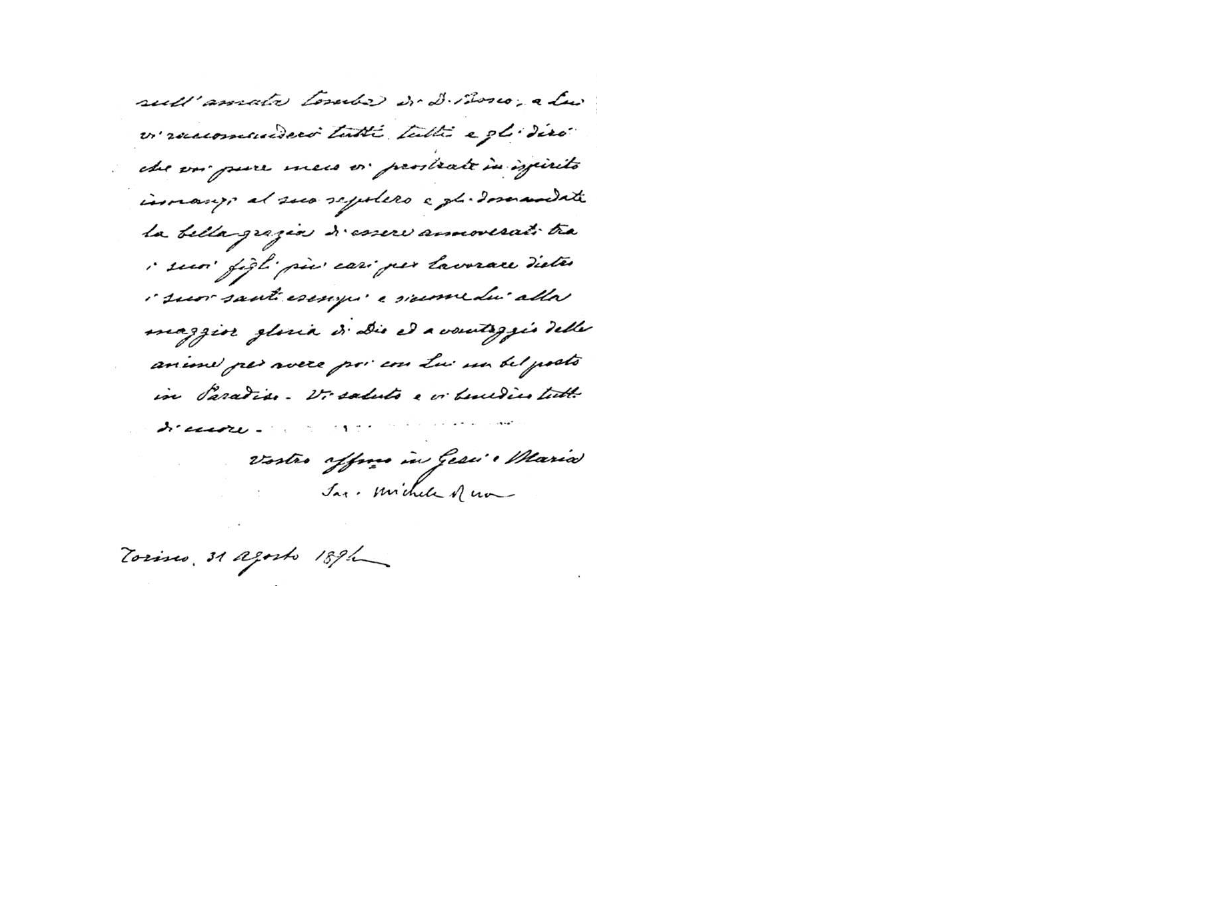 sull'amata tomba di D. Bosco; a Lui
vi raccomanderò tutti tutti e gli dirò
che voi pure meco vi prostrate in ispirito
innanzi al suo sepolcro e gli domandate
la bella grazia di essere annoverati tra
i suoi figli più cari per lavorare dietro
i suoi santi esempi e siccome Lui alla
maggior gloria di Dio ed a vantaggio delle
anime per avere poi con Lui un bel posto
in Paradiso. Vi saluto e vi benedico tutti
di cuore.
Vostro affmo in Gesù e Maria
Sac. Michele Rua
Torino, 31 Agosto 1894